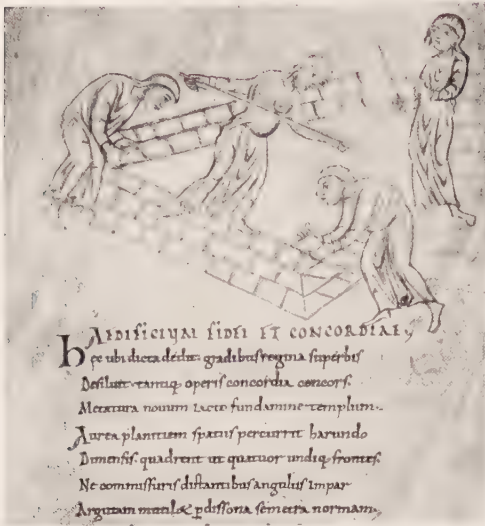 AEDIFICIUM FIDEI ET CONCORDIAE.
hęc ubi dicta dedit. gradibus regina superbis
Desiluit. tantiq; operis concordia concors.
Metatura nouum iacto fundamine templum.
Aurea planitiem spatiis percurrit harundo
Dimensis. quadrent ut quatuor undiq; frontes.
Ne commissuris distantibus angulus impar
Argutam mutilet p dissona semetra normam.